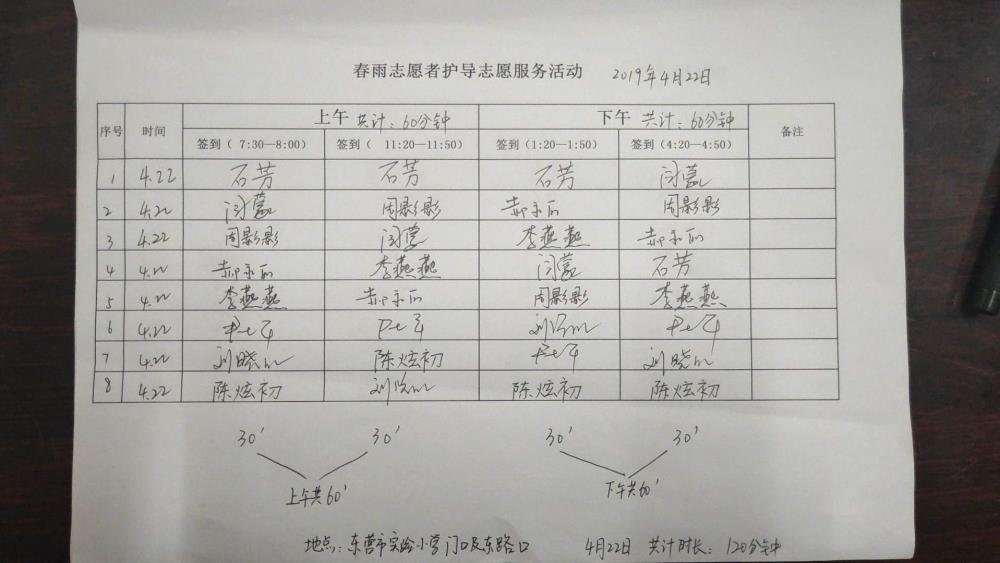 春雨志愿者护导志愿服务活动 2019年4月22日
序号 时间 上午 共计:60分钟 下午 共计:60分钟 备注
签到( 7:30—8:00) 签到( 11:20—11:50) 签到(1:20—1:50) 签到(4:20—4:50)
1 4.22 石芳 石芳 石芳 闫蒙
2 4.22 闫蒙 周影影 郝永丽 周影影
3 4.22 周影影 闫蒙 李燕燕 郝永丽
4 4.22 郝永丽 李燕燕 闫蒙 石芳
5 4.22 李燕燕 郝永丽 周影影 李燕燕
6 4.22
7 4.22 刘晓 陈炫初 刘晓
8 4.22 陈炫初 陈炫初 陈炫初
30' 30' 30' 30'
上午共60' 下午共60'
地点:东营市实验小学门口及东路口 4月22日 共计时长:120分钟